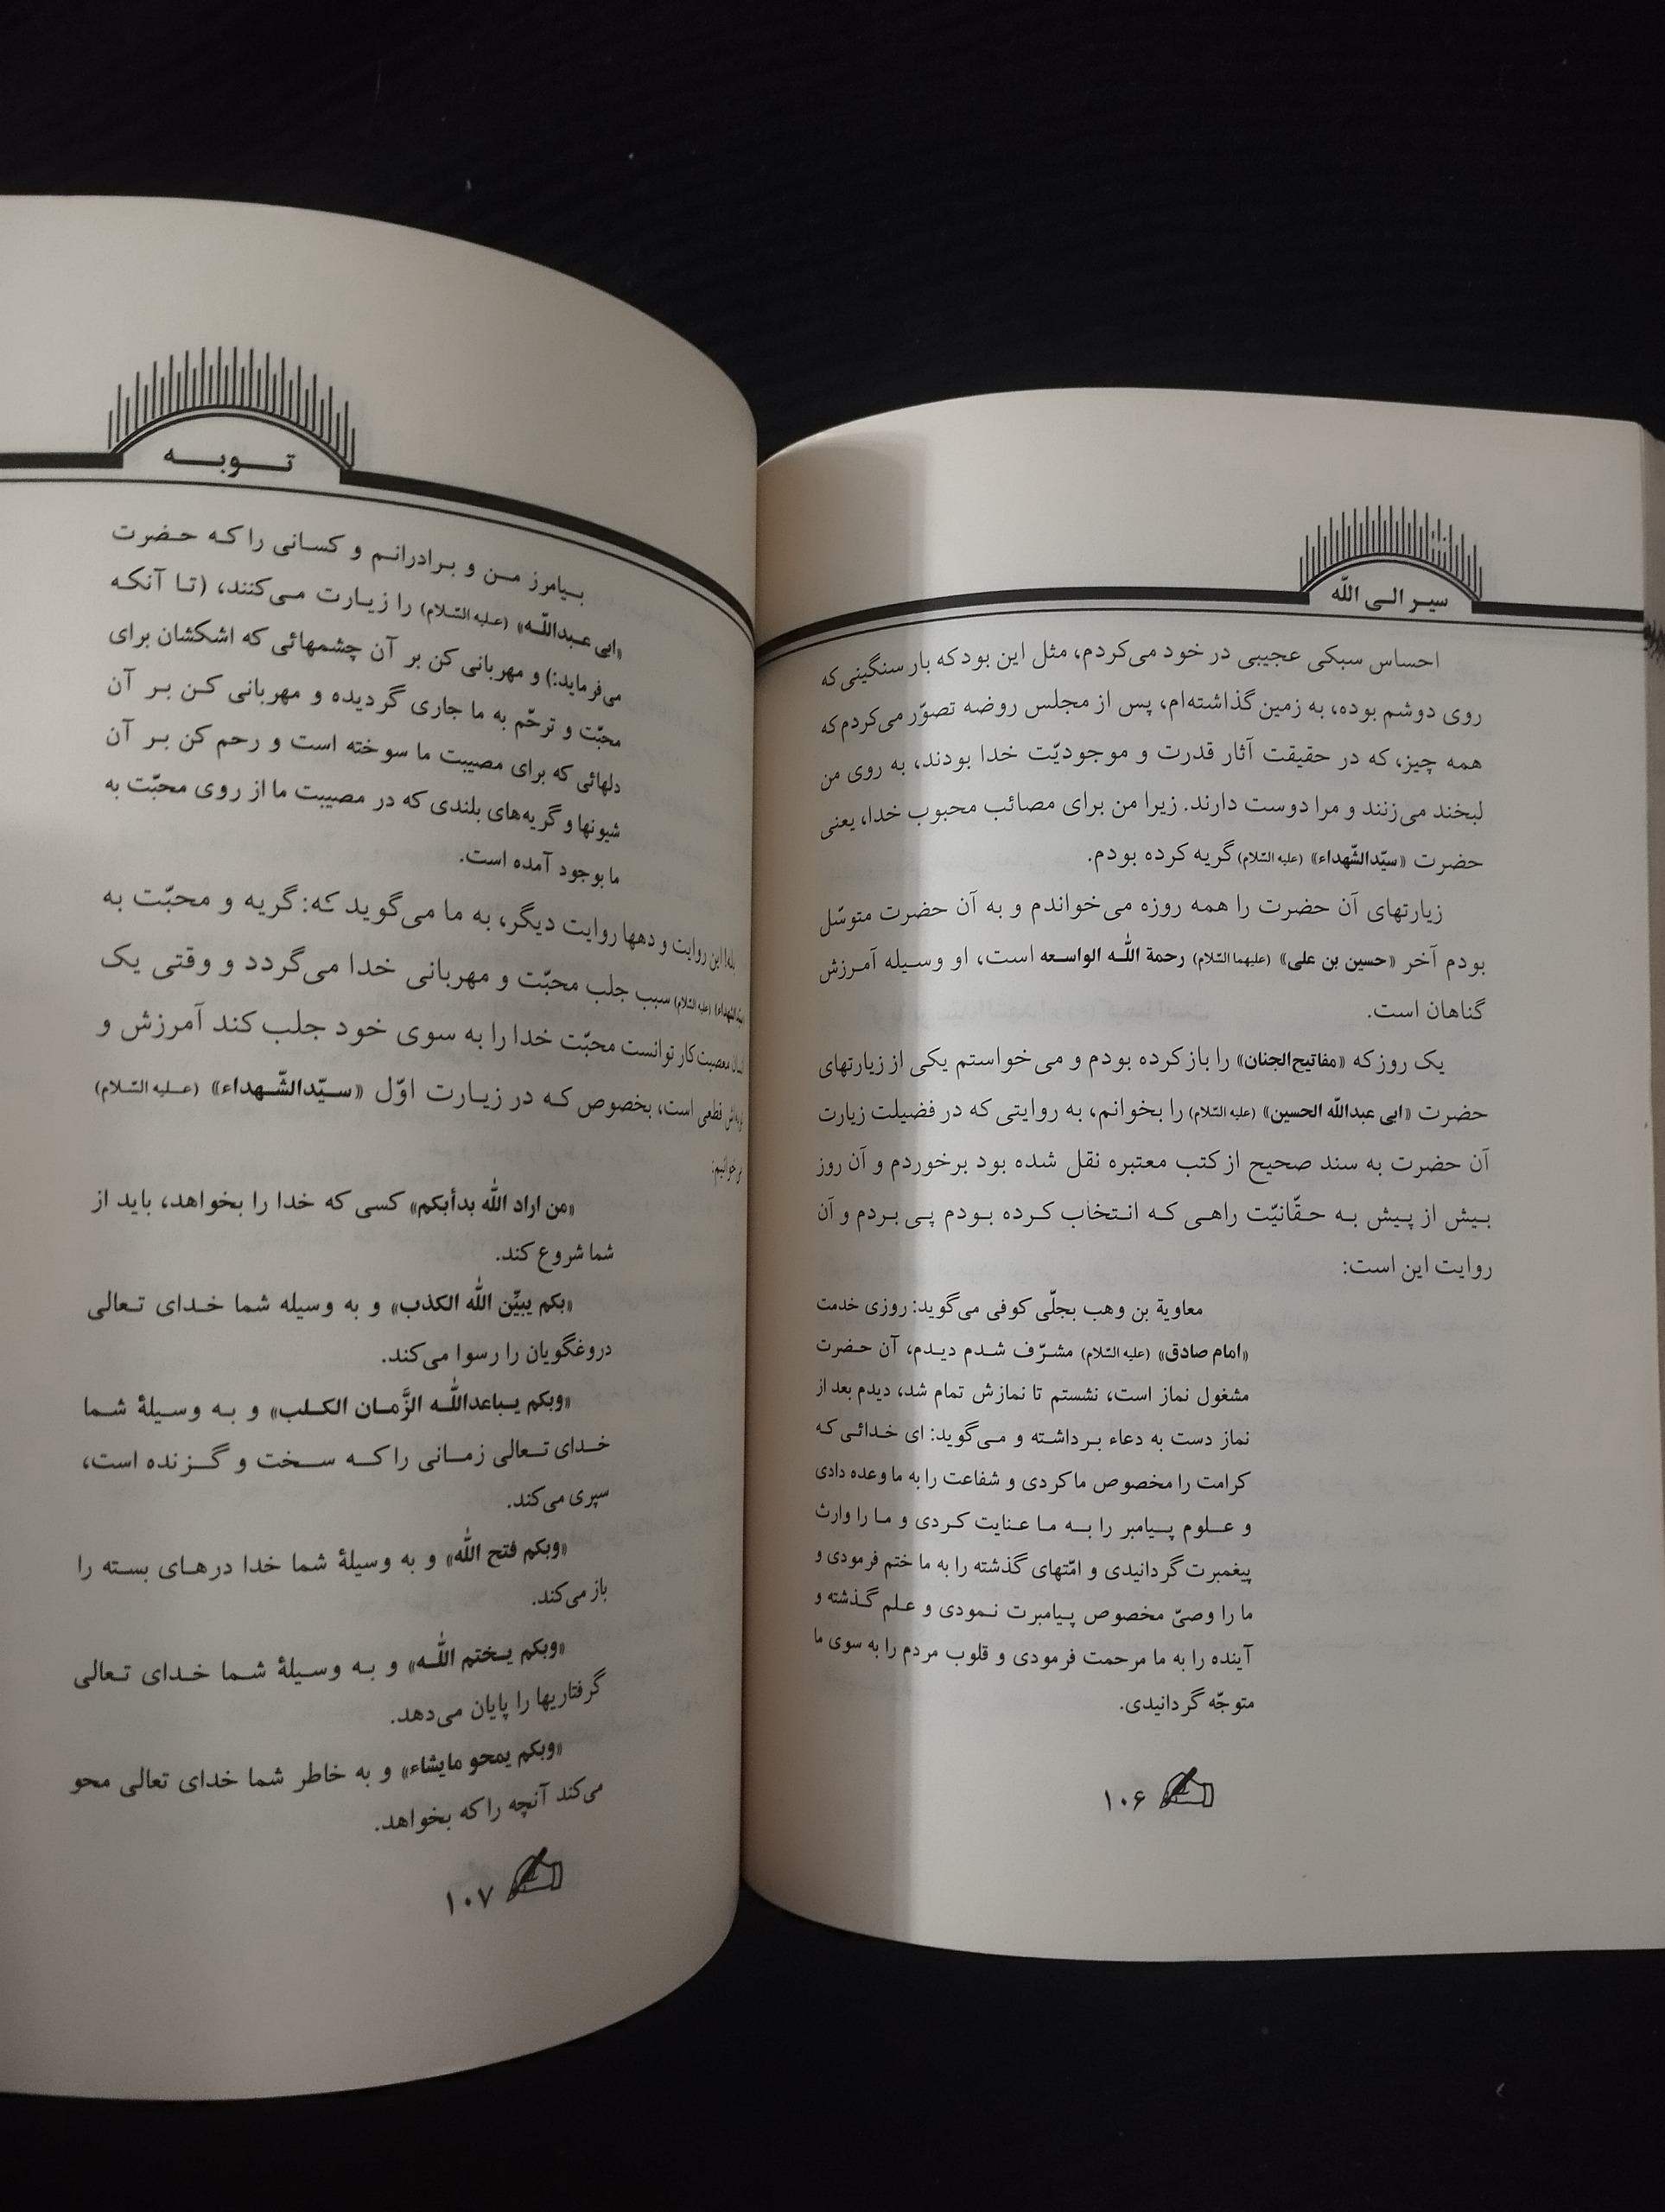 سیر الی اللّه
احساس سبکی عجیبی در خود می‌کردم، مثل این بود که بار سنگینی که
روی دوشم بوده، به زمین گذاشته‌ام، پس از مجلس روضه تصوّر می‌کردم که
همه چیز، که در حقیقت آثار قدرت و موجودیّت خدا بودند، به روی من
لبخند می‌زنند و مرا دوست دارند. زیرا من برای مصائب محبوب خدا، یعنی
حضرت «سیّدالشّهداء» (علیه السّلام) گریه کرده بودم.
زیارتهای آن حضرت را همه روزه می‌خواندم و به آن حضرت متوسّل
بودم آخر «حسین بن علی» (علیهما السّلام) رحمة اللّه الواسعه است، او وسیله آمرزش
گناهان است.
یک روز که «مفاتیح‌الجنان» را باز کرده بودم و می‌خواستم یکی از زیارتهای
حضرت «ابی عبداللّه الحسین» (علیه السّلام) را بخوانم، به روایتی که در فضیلت زیارت
آن حضرت به سند صحیح از کتب معتبره نقل شده بود برخوردم و آن روز
بیش از پیش به حقّانیّت راهی که انتخاب کرده بودم پی بردم و آن
روایت این است:
معاویة بن وهب بجلّی کوفی می‌گوید: روزی خدمت
«امام صادق» (علیه السّلام) مشرّف شدم دیدم، آن حضرت
مشغول نماز است، نشستم تا نمازش تمام شد، دیدم بعد از
نماز دست به دعاء برداشته و می‌گوید: ای خدائی که
کرامت را مخصوص ما کردی و شفاعت را به ما وعده دادی
و علوم پیامبر را به ما عنایت کردی و ما را وارث
پیغمبرت گردانیدی و امّتهای گذشته را به ما ختم فرمودی و
ما را وصیّ مخصوص پیامبرت نمودی و علم گذشته و
آینده را به ما مرحمت فرمودی و قلوب مردم را به سوی ما
متوجّه گردانیدی.
۱۰۶
توبه
بیامرز من و برادرانم و کسانی را که حضرت
«ابی عبداللّه» (علیه السّلام) را زیارت می‌کنند، (تا آنکه
می‌فرماید:) و مهربانی کن بر آن چشمهائی که اشکشان برای
محبّت و ترحّم به ما جاری گردیده و مهربانی کن بر آن
دلهائی که برای مصیبت ما سوخته است و رحم کن بر آن
شیونها و گریه‌های بلندی که در مصیبت ما از روی محبّت به
ما بوجود آمده است.
این روایت و دهها روایت دیگر، به ما می‌گوید که: گریه و محبّت به
(علیه السّلام) سبب جلب محبّت و مهربانی خدا می‌گردد و وقتی یک
معصیت‌کار توانست محبّت خدا را به سوی خود جلب کند آمرزش و
قطعی است، بخصوص که در زیارت اوّل «سیّدالشّهداء» (علیه السّلام)
می‌خوانیم:
«من اراد اللّه بدأبکم» کسی که خدا را بخواهد، باید از
شما شروع کند.
«بکم یبیّن اللّه الکذب» و به وسیله شما خدای تعالی
دروغگویان را رسوا می‌کند.
«وبکم یباعداللّه الزَّمان الکلب» و به وسیلهٔ شما
خدای تعالی زمانی را که سخت و گزنده است،
سپری می‌کند.
«وبکم فتح اللّه» و به وسیلهٔ شما خدا درهای بسته را
باز می‌کند.
«وبکم یختم اللّه» و به وسیلهٔ شما خدای تعالی
گرفتاریها را پایان می‌دهد.
«وبکم یمحو مایشاء» و به خاطر شما خدای تعالی محو
می‌کند آنچه را که بخواهد.
۱۰۷